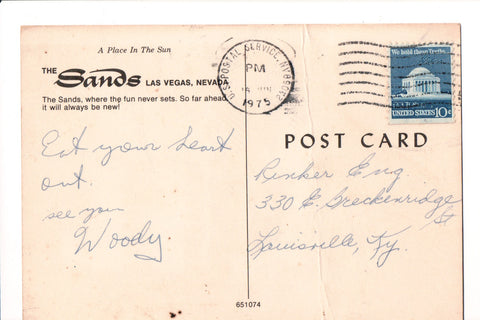 A Place In The Sun
THE Sands LAS VEGAS, NEVADA
The Sands, where the fun never sets. So far ahead,
it will always be new!
Eat your heart
out.
see you
Woody.
651074
U.S. POSTAL SERVICE, NV
PM
1975
We hold these Truths...
UNITED STATES 10c
POST CARD
Rinker Eng.
330 E. Breckenridge
St
Louisville, Ky.